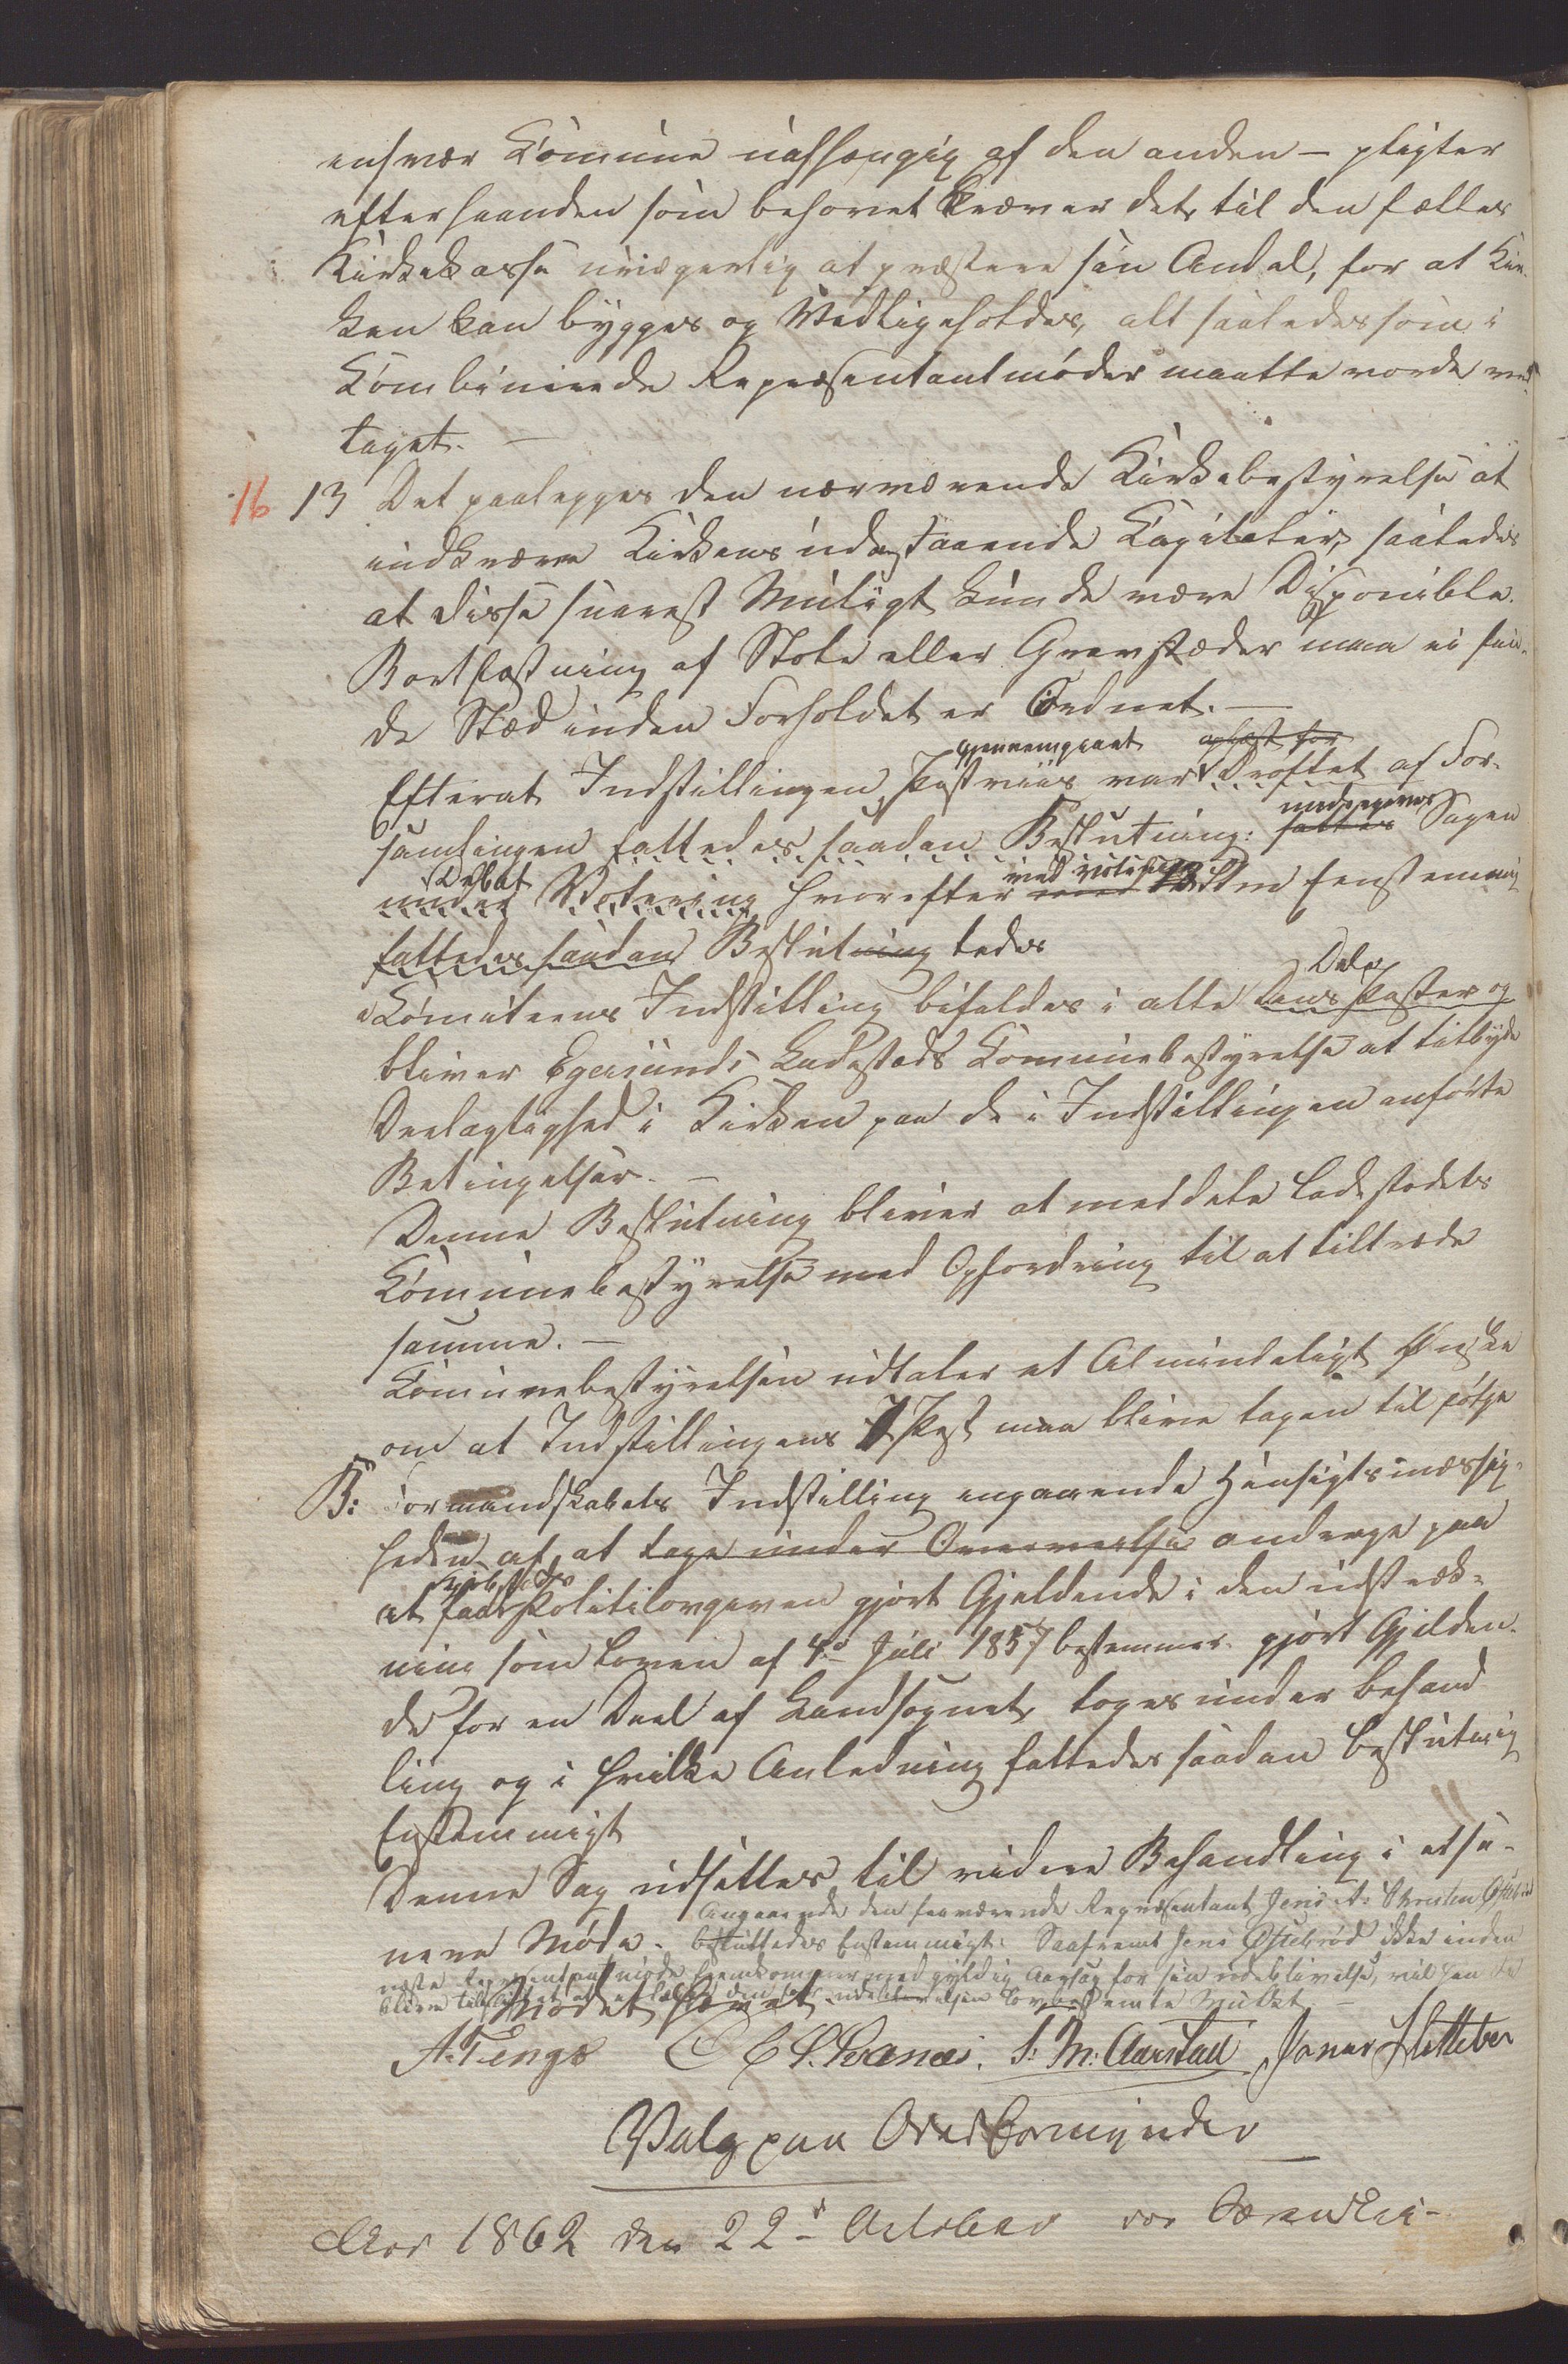 enhver Commune uafhængig af den anden – pligter
efterhaanden som behovet kræver det, til den fælles
Kirkekasse uvægerlig at præstere sin Andel, for at Kir-
ken kan bygges og Vedligeholdes, alt saaledes som i
Kombinerede Repræsentantmøder maatte vorde ved
taget. –
16 13 Det paalegges den nærværende Kirkebestyrelse at
indkræve Kirkens udestaaende Kapitaler, saaledes
at disse snarest Muligt kunde være Disponible.
Bortfæstning af Stole eller Gravstæder maa ei fin-
de Stæd inden Forholdet er Ordnet. –
gjennemgaaet oplæst for
Efterat Indstillingen Postviis var Drøftet af For-
samlingen fattedes saadan Beslutning: sattes Sagen
Debat
under Votering hvorefter 13 Stem Eenstemmig
fattedes saadan Beslutning tedes
Dele
Comiteens Indstilling bifaldes i alle dens Poster og
bliver Egersunds Ladesteds Communebestyrelse at tilbyde
Deelagtighed i Kirken paa de i Indstillingen anførte
Betingelser. –
Denne Beslutning bliver at meddele Ladestedets
Communebestyrelse med Opfordring til at tiltræde
samme. –
Communebestyrelsen udtaler et Almindeligt Ønske
om at Indstillingens 7 Post maa blive tagen til følge
B: Formandskabets Indstilling angaaende Hensigtsmæssig-
heden af, at tage under Overveielse andrage paa
at faae Politilovgiven gjort Gjeldende i den udstræk-
ning som Loven af 4de Juli 1857 bestemmer gjørt Gjelden-
de for en Deel af Landsognet, toges under behand
ling og i hvilke Anledning fattedes saadan beslutning
Enstemmigt
Denne Sag udsættes til videre Behandling i et se-
Angaaende den fraværende Repræsentant Jens
nere Møde. besluttedes Enstemmigt: Saafremt Jens Øftebrød ikke inden
næste Repræsentantmøde fremkommer med gyldig Aarsag for sin udeblivelse, vil han da
blive den for udeblivelsen lovbestemte Mulkt –
Mødet hævet
A. Tengs S. M. Aarstad Jonas Sletteber
Valg paa Overformynder
Aar 1862 den 22de October